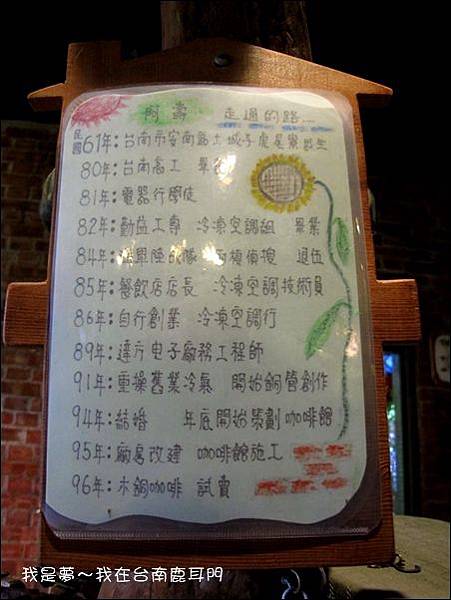 阿壽 走過的路...
民國61年:台南市安南區土城子虎尾寮出生
80年:台南高工 畢
81年:電器行學徒
82年:勤益工專 冷凍空調組 畢業
84年:海軍陸戰隊 偵搜 退伍
85年:餐飲店店長 冷凍空調技術員
86年:自行創業 冷凍空調行
89年:達方电子廠務工程師
91年:重操舊業冷氣 開始銅管創作
94年:結婚 年底開始策劃咖啡館
95年:廠房改建 咖啡館施工
96年:木銅咖啡 試賣
我是夢～我在台南鹿耳門